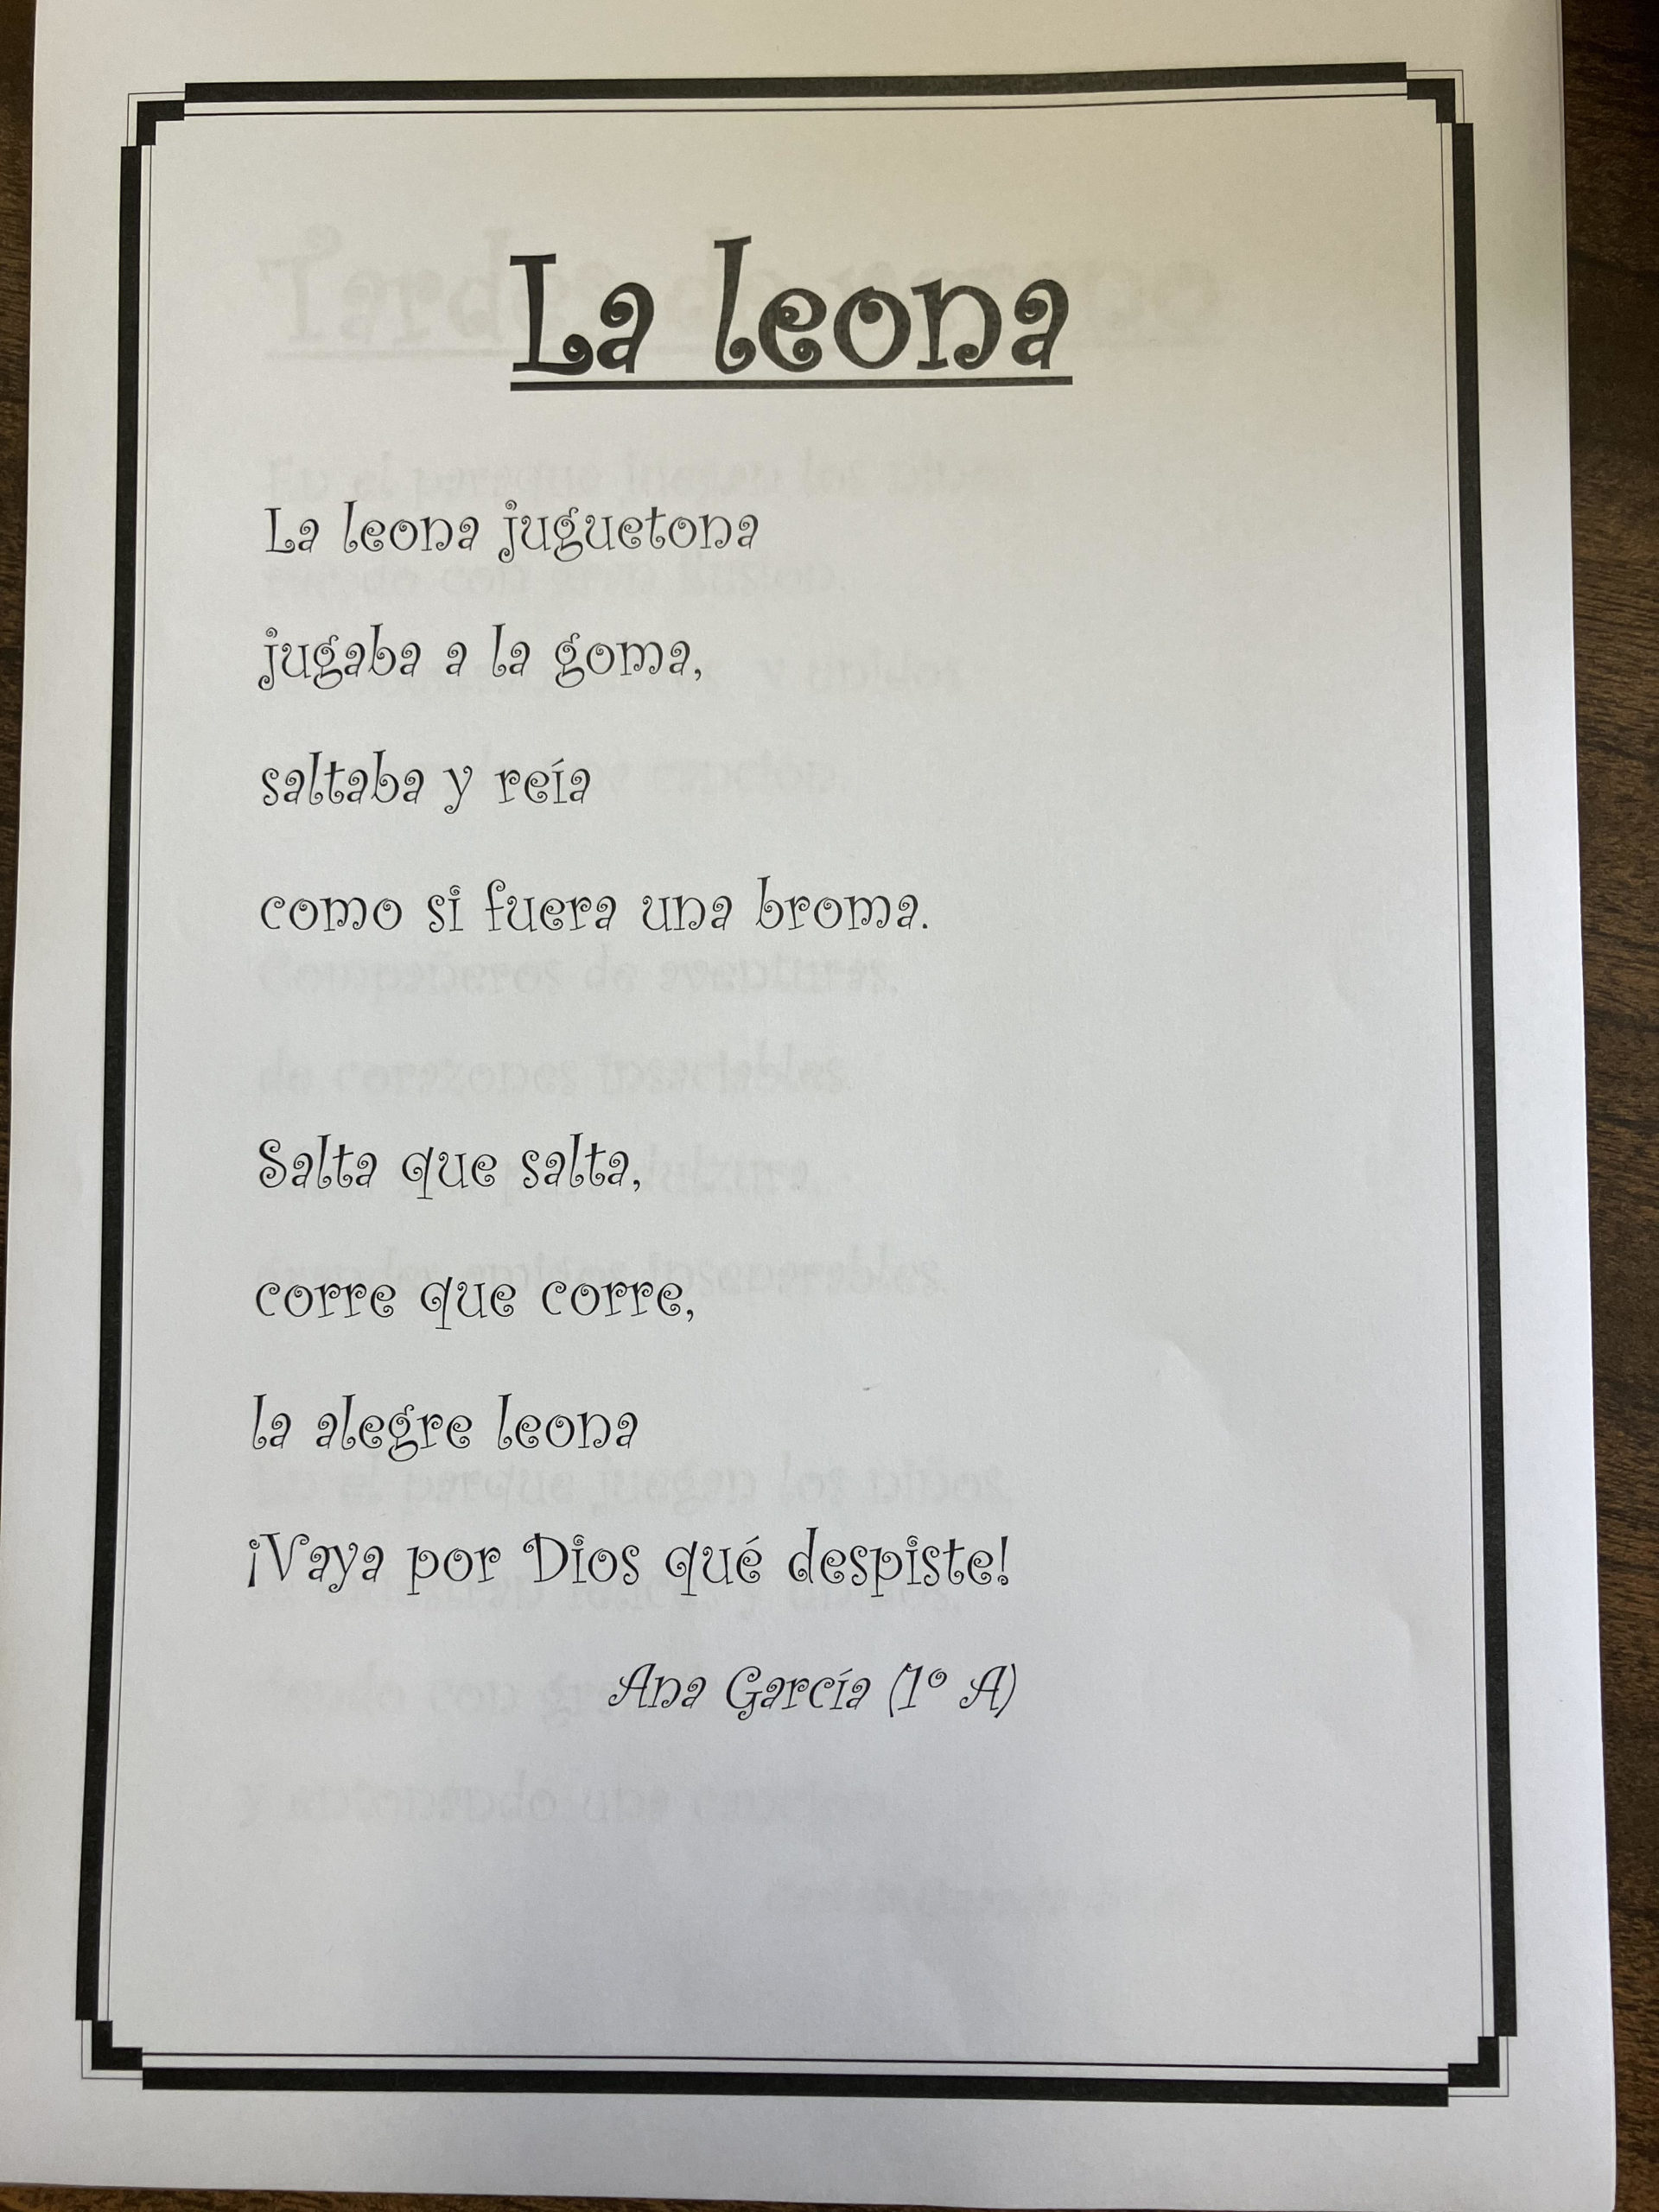 La leona
La leona juguetona
jugaba a la goma,
saltaba y reía
como si fuera una broma.
Salta que salta,
corre que corre,
la alegre leona
¡Vaya por Dios qué despiste!
Ana García (1º A)